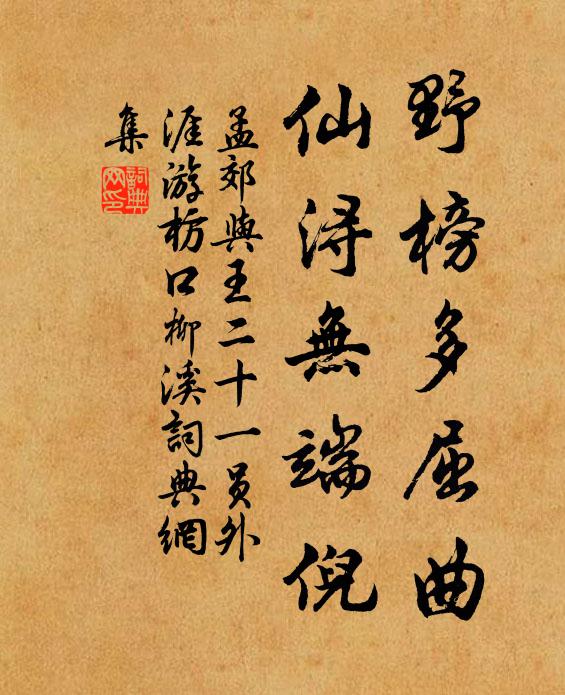 野榜多屈曲
仙浔無端倪
孟郊與王二十一員外
涯游枋口柳溪詞典網
集
詞典
网印